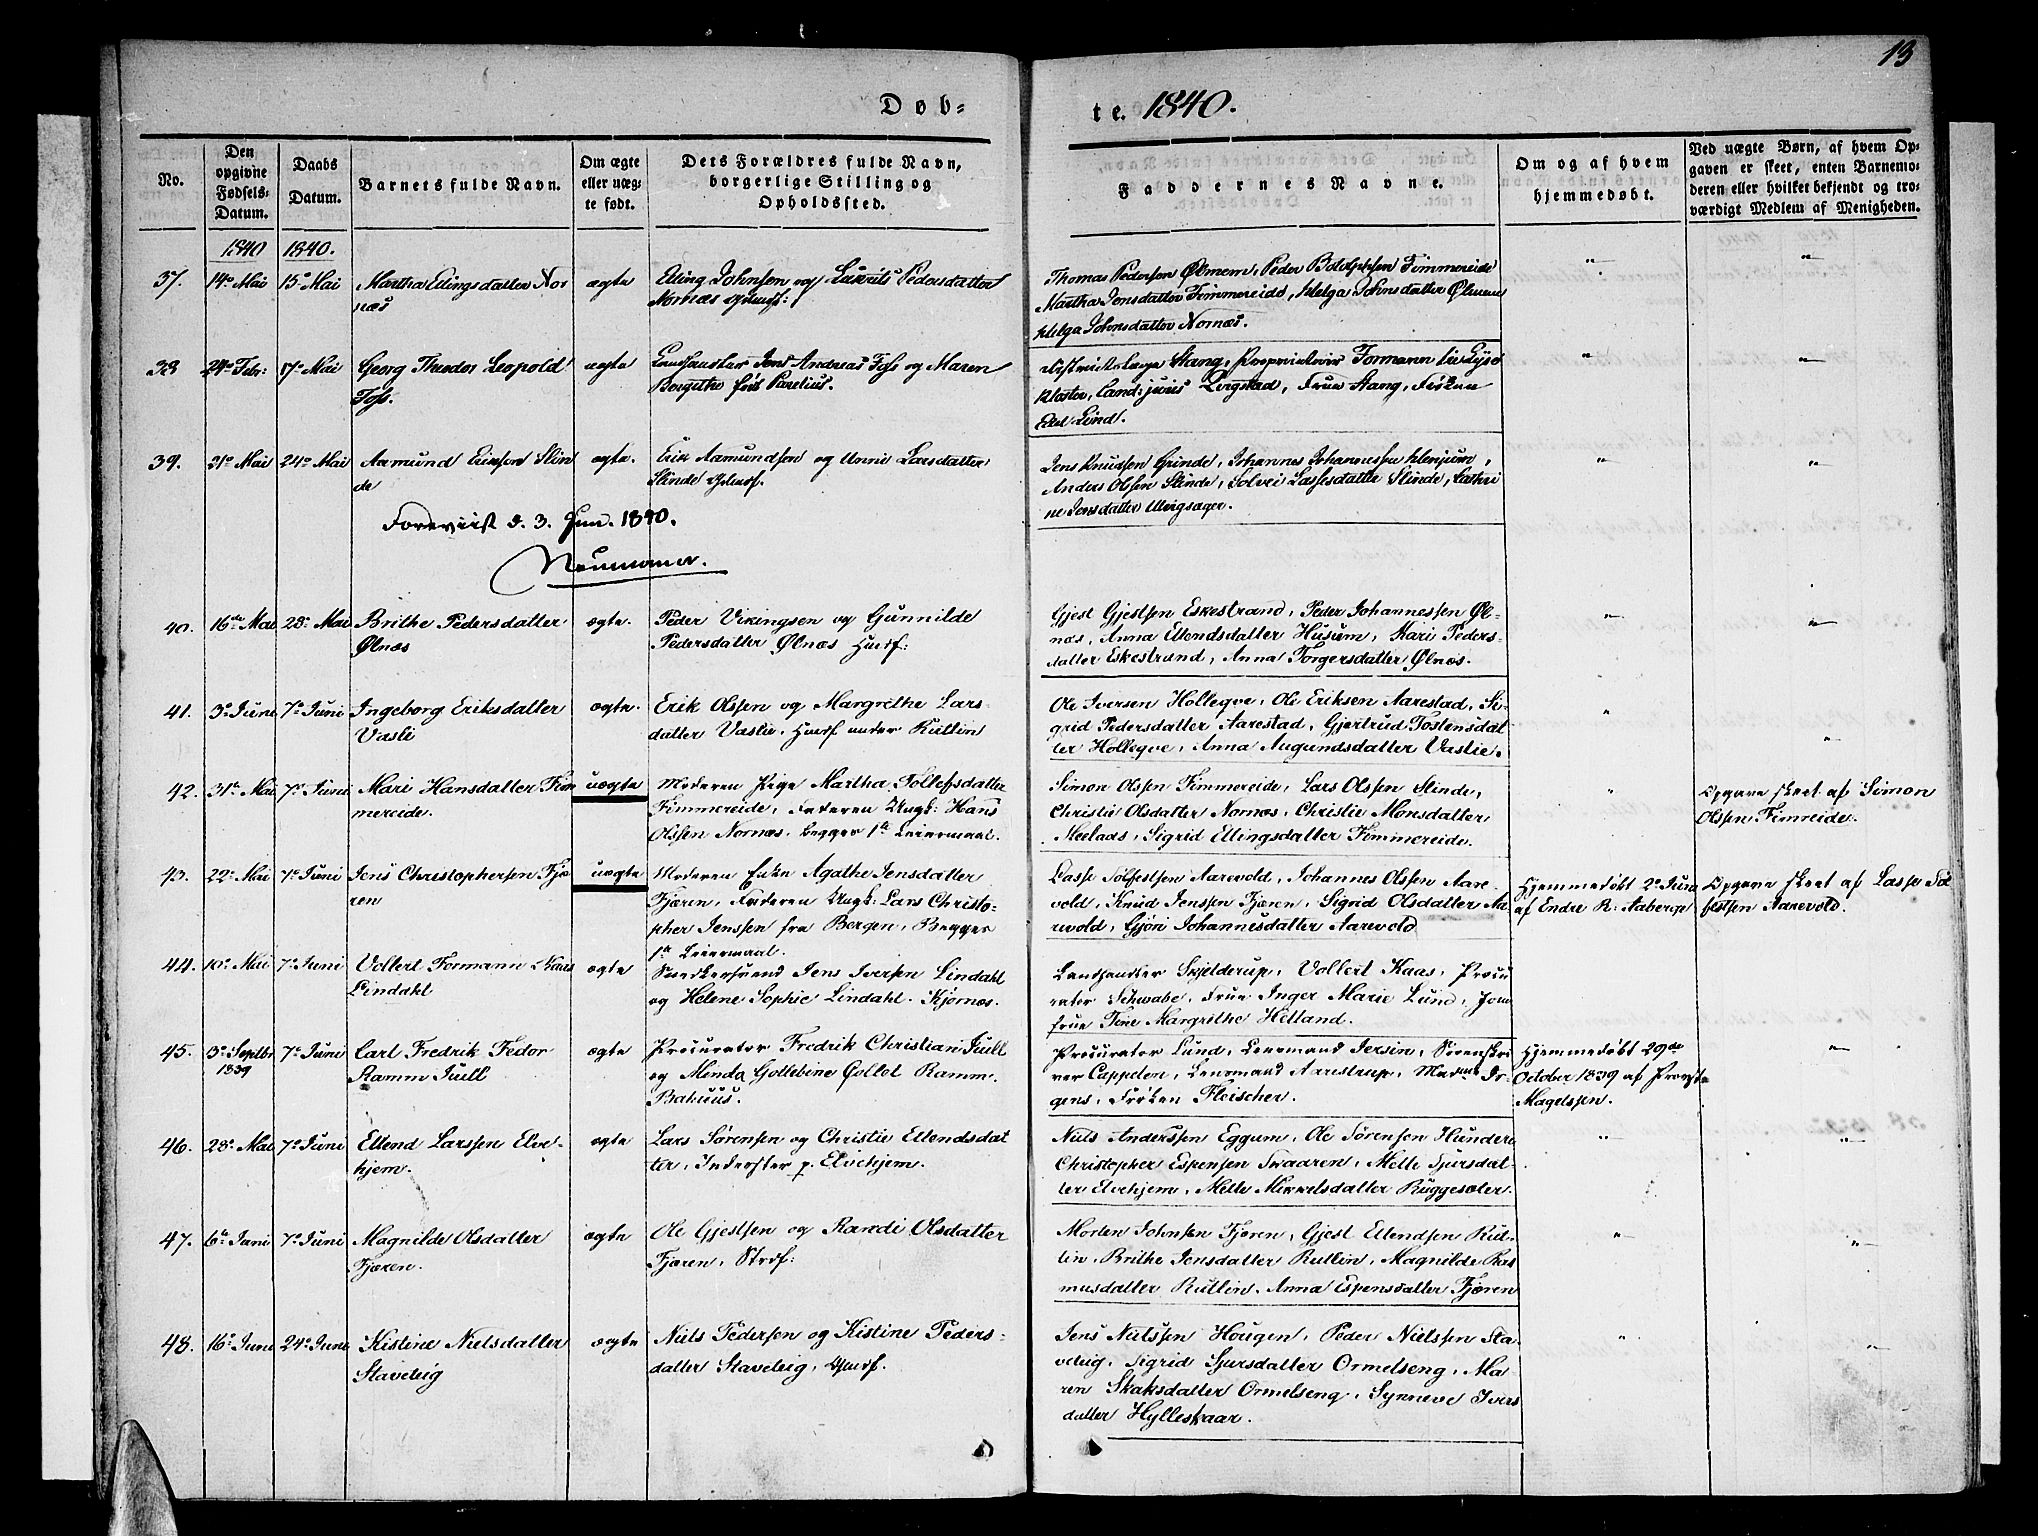 13
Døb-
te. 1840.
No.
Den opgivne Fødsels-Datum.
Daabs Datum.
Barnets fulde Navn.
Om ægte eller uæg-te født.
Dets Forældres fulde Navn, borgerlige Stilling og Opholdssted.
Faddernes Navne.
Om og af hvem hjemmedøbt.
Ved uægte Børn, af hvem Op-gaven er skeet, enten Barnemo-deren eller hvilket bekjendt og tro-værdigt Medlem af Menigheden.
1840 1840.
37. 14de Mai 15de Mai Martha Ellingsdatter Nor
næs
ægte
Elling Johnsen og Pedersdatter
Nornæs
Thomas Pedersen Ølmem, Peder Botolphsen Fimmereide
Martha Jensdatter Fimmereide, Helga Johnsdatter Ølmem
Helga Johnsdatter Nornæs.
" "
38 24de Febr: 17de Mai Georg Theodor Leopold
Foss.
ægte
Jens Andreas Foss og Maren
Bergithe
Stang, Proprietair Formann til Lyse
Kloster, Cand: juris Qvigstad, Frue Stang, Frøken
Lind.
" "
39. 21de Mai 24de Mai Aamund Eriksen Slin
de
ægte.
Erik Aamundsen og Unni Larsdatter
Slinde
Jens Knudsen Grinde, Johannes Johannessen Henjum,
Anders Olsen Slinde, Solvei Lassesdatter Slinde, Cathri
ne Jensdatter
" "
Foreviist d. 3. Jun. 1840.
Neumann.
40. 16de Mai 28de Mai Brithe Pedersdatter
Ølnæs
ægte.
Peder Vikingsen og Gunnilde
Pedersdatter Ølnæs Husf:
Gjest Gjestsen Eskestrand, Peder Johannessen Øl-
næs, Anna Ellendsdatter Husum, Mari Peders-
datter Eskestrand, Anna Torgersdatter Ølnæs.
" "
41. 3de Juni 7de Juni Ingeborg Eriksdatter
Vasli
ægte.
Erik Olssen og Margrethe Lars-
datter Vaslie, Husf under Rutlin
Ole Iversen Hollegve, Ole Eriksen Aarestad, Si-
grid Pedersdatter Aarestad, Gjertrud Tostensdat
ter Hollegve, Anna Augundsdatter Vaslie.
" "
42. 31te Mai 7de Juni Mari Hansdatter Fim
mereide.
uægte
Moderen Pige Martha Tollefsdatter
Fimmereide, Faderen Ungk: Hans
Olssen Nornæs, begges 1ste Leiermaal.
Simon Olssen Fimmereide, Lars Olssen Slinde,
Christie Olsdatter Nornæs, Christie Monsdatter
Meelaas, Sigrid Ellingsdatter Fimmereide.
"
Opgave skeet af Simon
Olssen Fimreide.
43. 22de Mai 7de Juni Jens Christophersen Fjæ
ren
uægte
Moderen Enke Agathe Jensdatter
Fjæren, Faderen Ungk: Lars Christo-
pher Jenssen fra Bergen, Begges
1ste Leiermaal.
Lasse Solfestsen Aarevold, Johannes Olssen Aare-
vold, Knud Jenssen Fjæren, Sigrid Olsdatter Aa
revold, Gjøri Johannesdatter Aarevold
Hjemmedøbt 2de Juni
af Endre R: Aaberge
Opgave skeet af Lasse Sol
festsen Aarevold.
44. 10de Mai 7de Juni Vollert Formann Kaas
Lindahl
ægte
Jens Iversen Lindahl
og Helene Sophie Lindahl. Kjørnæs.
Landhandler Skjelderup, Vollert Kaas, Procu
rator Schwabe, Frue Inger Marie Lund, Jom
frue Tine Margrethe Heiland.
45. 3de Septbr
1839
7de Juni Carl Fredrik Fedor
Ramm Juell
ægte
Procurator Fredrik Christian Juell
og Minda Gollebine Collet Ramm.
Procurator Lund, Lensmand Jersin, Sorenskri
ver Cappelen, Lensmand Aarestrup, Madme Ir-
gens, Frøken Fleischer.
Hjemmedøbt 29de
October 1839 af Provst
Magelssen.
"
46. 28de Mai 7de Juni Ellend Larssen Elve-
hjem.
ægte
Lars Sørensen og Christie Ellendsdat
ter, Inderster p. Elvehjem.
Niels Anderssen Eggum, Ole Sørensen Hundere
Christopher Espensen Svaaren, Mette Sjursdat-
ter Elvehjem, Mette Mikkelsdatter Ruggesæter.
" "
47. 6te Juni 7de Juni Magnilde Olsdatter
Fjæren.
ægte
Ole Gjestsen og Randi Olsdatter
Fjæren, Strdf:
Morten Johnsen Fjæren, Gjest Ellendsen Rut-
lin, Brithe Jensdatter Rutlin, Magnilde Ras
musdatter Rutlin, Anna Espensdatter Fjæren
" "
48. 16de Juni 24de Juni Kistine Nielsdatter
Staveleig
ægte
Niels Pedersen og Kistine Peders-
datter Staveleig, Husf.
Jens Nielssen Hougen, Peder Nielssen Sta-
veleig, Sigrid Sjursdatter Ormelseng, Ma-
ren Skaksdatter Ormelseng, Synneve Ivers
datter Hylleskaar.
" "